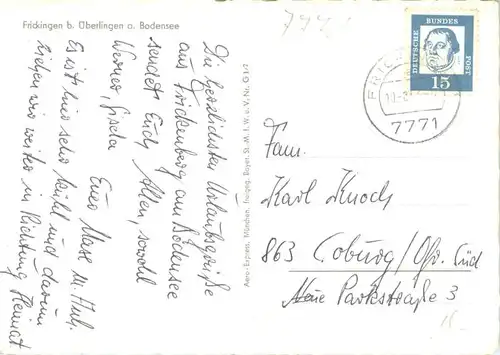 Frickingen b. Überlingen a. Bodensee
Die herzlichsten Urlaubsgrüße
aus Frickenberg am Bodensee
sendet Euch Allen, sowohl
Werner, Gisela
Eure Marg. m.
Es ist hier sehr kühl und darum
ziehen wir weiter in Richtung Heimat
Aero-Express, München, Freigeg. Bayer. St. M. f. W. u. V. Nr. G
DEUTSCHE BUNDES POST
15
FRICK
7771
Fam.
Karl Knoch
863 Coburg/Ofr. Süd
Neue Parkstraße 3